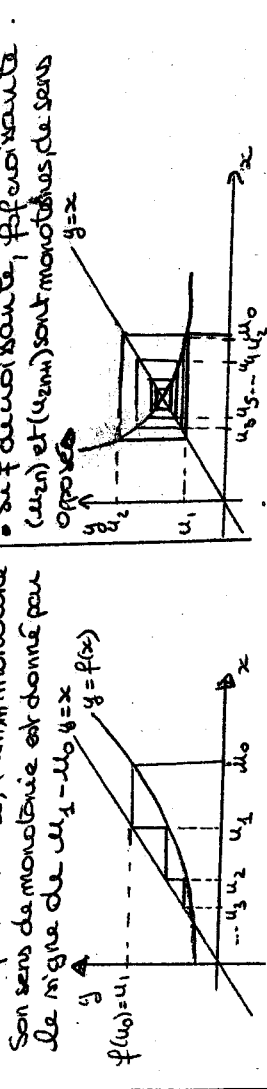 Son sens de monotonie est donné par
le signe de u₁ - u₀
y=x
y
f(u₀)=u₁
y=f(x)
... u₃ u₂ u₁ u₀ x
• Si f décroissante, fof croissante
(u₂ₙ) et (u₂ₙ₊₁) sont monotones, de sens
opposés
y=x
y
u₂
u₁
u₃ u₅ ... u₄ u₂ u₀ x